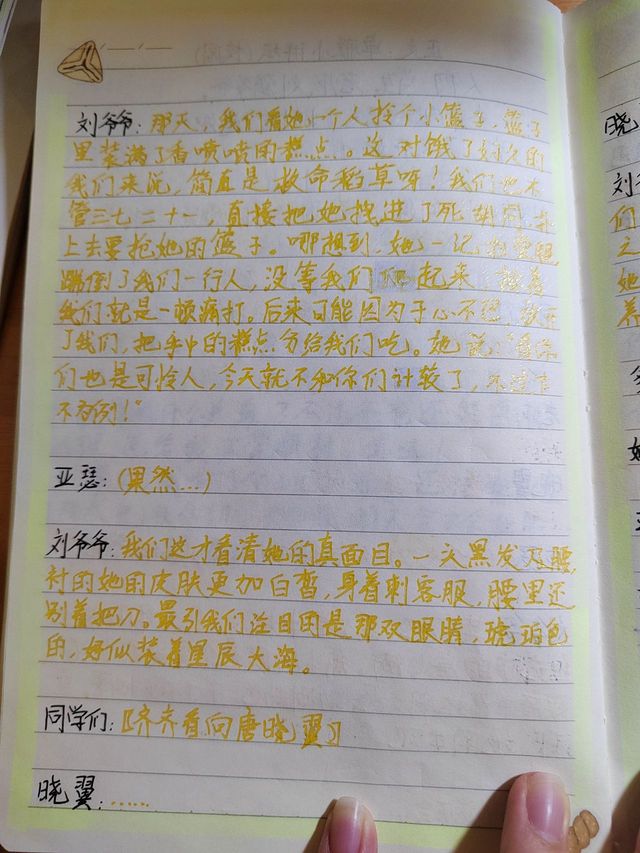 刘爷爷:那天,我们看她一个人拎个小篮子,篮子
里装满了香喷喷的糕点。这对饿了好久的
我们来说,简直是救命稻草呀!我们也不
管三七二十一,直接把她拽进了死胡同
上去要抢她的篮子。哪想到,她一记
踹倒了我们一行人,没等我们起来
我们就是一顿痛打。后来可能因为于心不忍,放开
了我们,把手中的糕点分给我们吃。她说:“看你
们也是可怜人,今天就不和你们计较了,
不为例!”
亚瑟:(果然...)
刘爷爷:我们这才看清她的真面目。一头黑发及腰,
衬的她的皮肤更加白皙,身着刺客服,腰里还
别着把刀。最引我们注目的是那双眼睛,琥珀色
的,好似装着星辰大海。
同学们:[齐齐看向唐晓翼]
晓翼:......
晓
刘
们
之
她